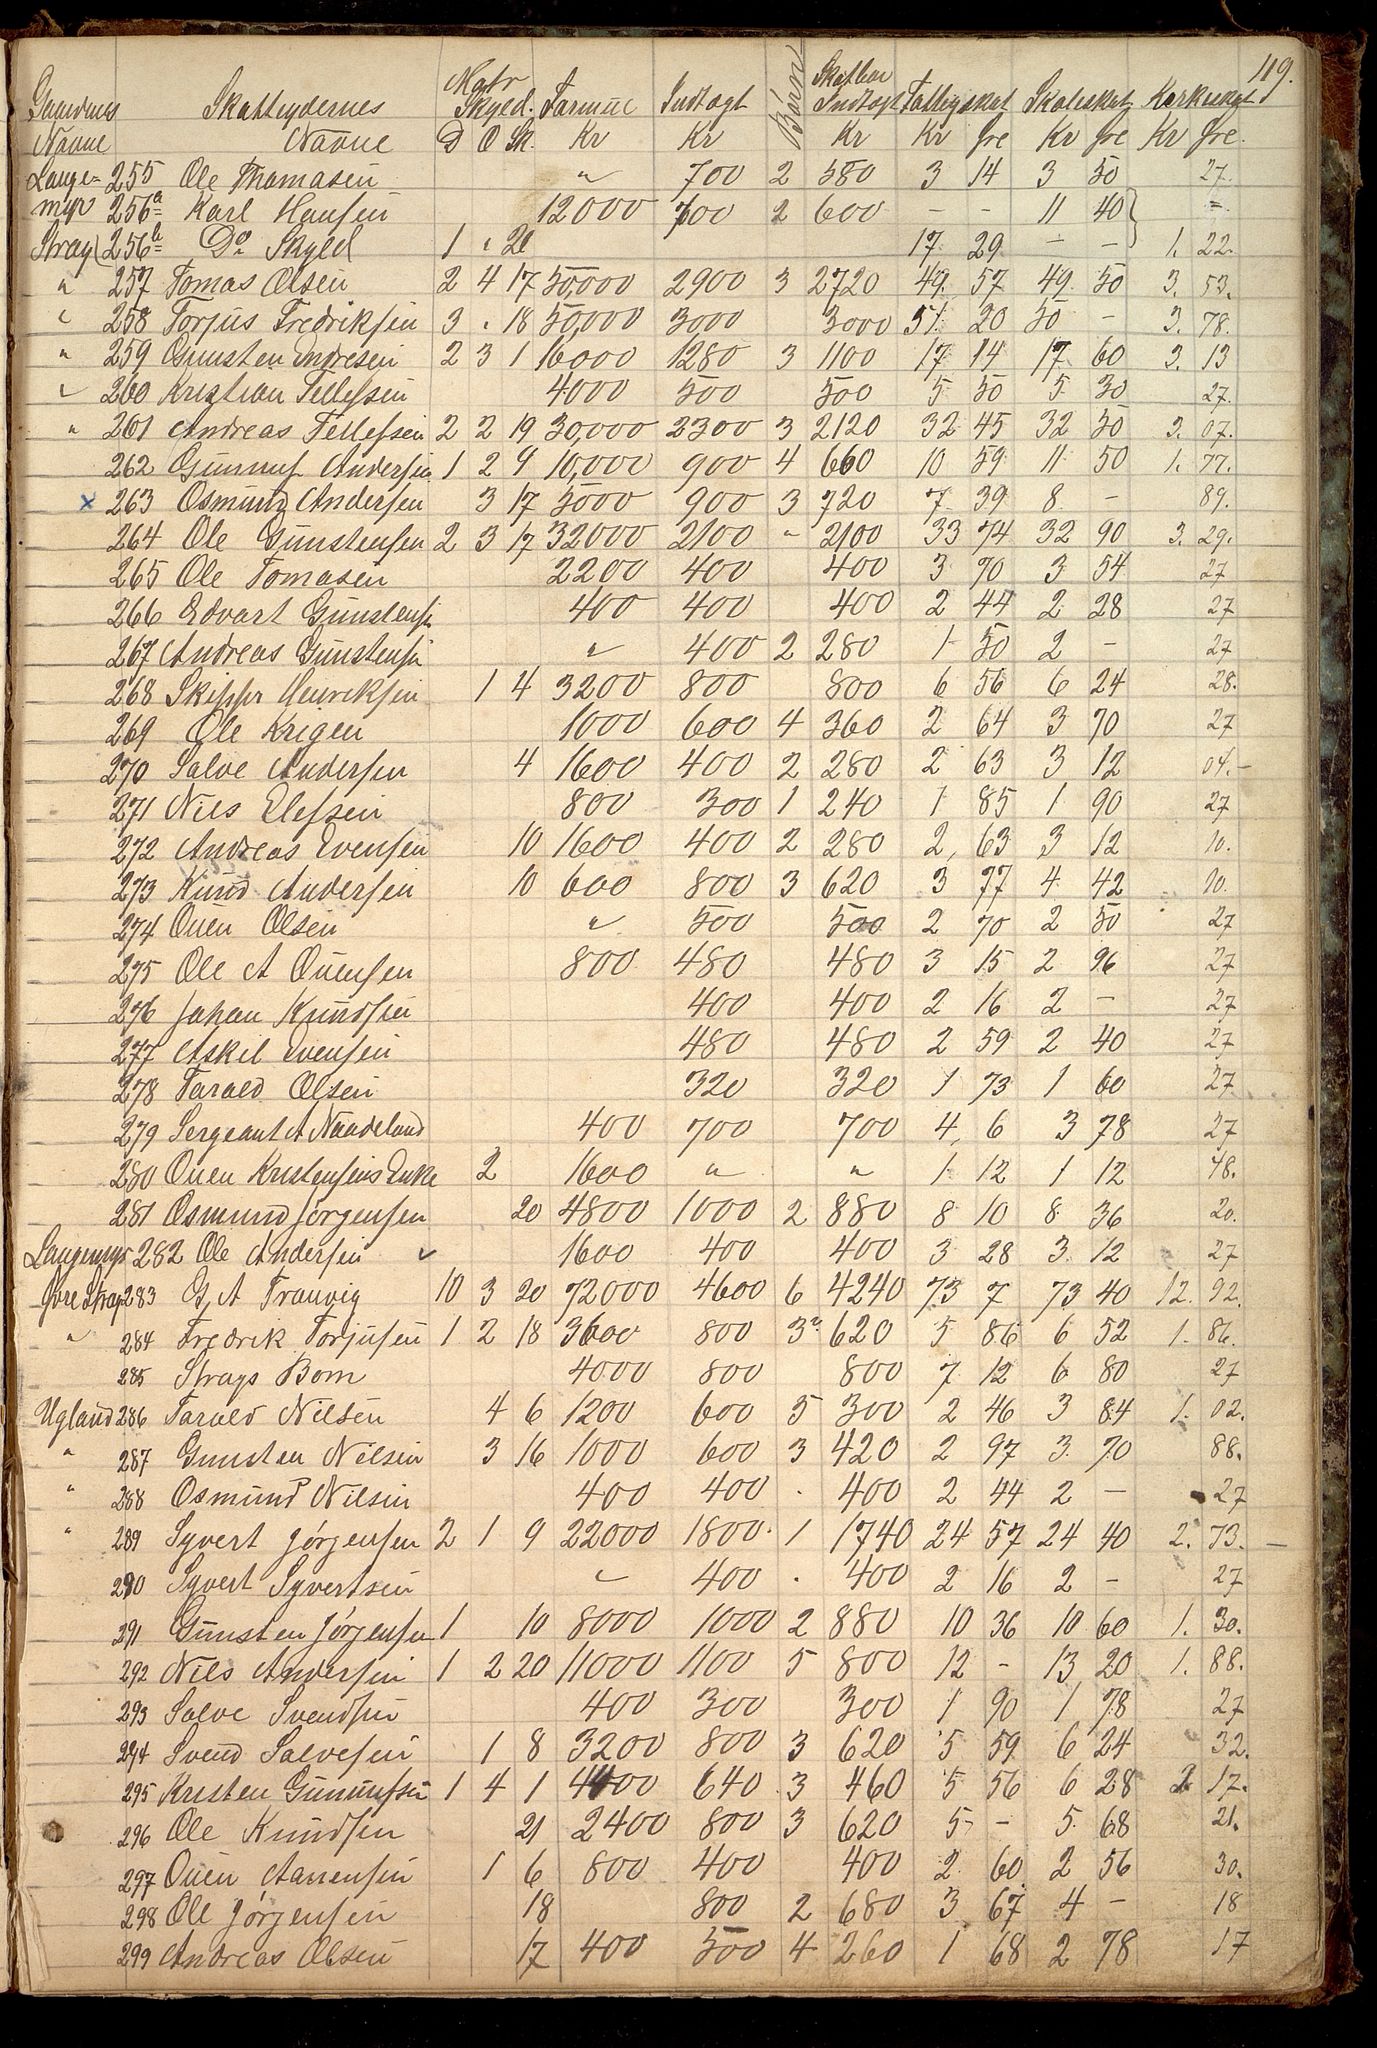 119.
Gaardenes Skatteydernes Matr Skyld. Formue Indtægt Børn Skatbar Indtægt Fattigskat Skoleskat Kirkeskat
Navne Navne D O Sk. Kr Kr Kr Kr Øre Kr Øre Kr Øre.
Lange= 255 Ole Thomasen " 700 2 580 3 14 3 50 27.
myr 256a Karl Hansen 12000 700 2 600 - - 11 40 } =
Stray 256b Do Skyld 1 " 20 17 29 - - 1. 22.
" 257 Tomas Olsen 2 4 17 50,000 2900 3 2720 49. 57 49. 50 3. 53.
" 258 Torjus Fredriksen 3 " 18 50,000 3000 3000 51. 20 50 - 3. 78.
" 259 Gunsten Andresen 2 3 1 16000 1280 3 1100 17 14 17 60 3. 13
" 260 Kristian Tellefsen 4000 500 500 5 50 5. 30 27.
" 261 Andreas Tellefsen 2 2 19 30,000 2300 3 2120 32 45 32 50 3. 07.
262 Gunnuf Andersen 1 2 9 10,000 900 4 660 10 59 11 50 1. 77.
x 263 Osmund Andersen 3 17 5000 900 3 720 7. 39 8 - 89.
264 Ole Gunstensen 2 3 17 32000 2100 " 2100 33 74 32 90 3. 29.
265 Ole Tomasen 2200 400 400 3 70 3 54 27
266 Edvart Gunstensen 400 400 400 2 44 2 28 27
267 Andreas Gunstensen " 400 2 280 1 50 2 - 27
268 Skipper Henriksen 1 4 3200 800 800 6 56 6 24 28.
269 Ole Krigen 1000 600 4 360 2 64 3 70 27
270 Salve Andersen 4 1600 400 2 280 2 63 3 12 04.-
271 Nils Elefsen 800 300 1 240 1 85 1 90 27
272 Andreas Evensen 10 1600 400 2 280 2, 63 3 12 10.
273 Knud Andersen 10 600 800 3 620 3 77 4. 42 10.
274 Ouen Olsen " 500 500 2 70 2 50 27
275 Ole A Ouensen 800 480 480 3 15 2 96 27
276 Johan Knudsen 400 400 2 16 2 - 27
277 Askel Evensen 480 480 2 59 2 40 27
278 Tarald Olsen 320 320 1 73 1 60 27.
279 Sergeant A Naadeland 400 700 700 4, 6 3 78 27
280 Ouen Kristensens Enke 2 1600 " " 1 12 1 12 48.
281 Osmund Jørgensen 20 4800 1000 2 880 8 10 8. 36 20.
Langemyr 282 Ole Andersen ✓ 1600 400 400 3 28 3. 12 27
Øvre Stray 283 G A Trauvig 10 3 20 72000 4600 6 4240 73 7 73 40 12. 92.
" 284 Fredrik Torjusen 1 2 18 3600 800 3 620 5 86 6 52 1. 86.
285 Strays Bom 4000 800 800 7 12 6 80 27
Ugland 286 Tarald Nilsen 4 6 1200 600 5 300 2 46 3 84 1. 02.
" 287 Gunsten Nilsen 3 16 1000 600 3 420 2 97 3. 70 88.
" 288 Osmund Nilsen 400 400 . 400 2 44 2 - 27
" 289 Syvert Jørgensen 2 1 9 22000 1800 1 1740 24 57 24 40 2. 73. -
290 Syvert Syvertsen " 400 . 400 2 16 2 - 27
291 Gunsten Jørgensen 1 10 8000 1000 2 880 10 36 10 60 1. 30.
292 Nils Andersen 1 2 20 11000 1100 5 800 12 - 13 20 1. 88.
293 Salve Svendsen 400 300 300 1 90 1 78 27
294 Svend Salvesen 1 8 3200 800 3 620 5 59 6 24 32.
295 Kristen Gunnufsen 1 4 1 4400 640 3 460 5 56 6 28 2 17.
296 Ole Knudsen 21 2400 800 3 620 5 - 5. 68 21.
297 Ouen Aanensen 1 6 800 400 400 2 60 2 56 30.
298 Ole Jørgensen 18 800 2 680 3 67 4 - 18
299 Andreas Olsen 17 400 500 4 260 1 68 2 78 17